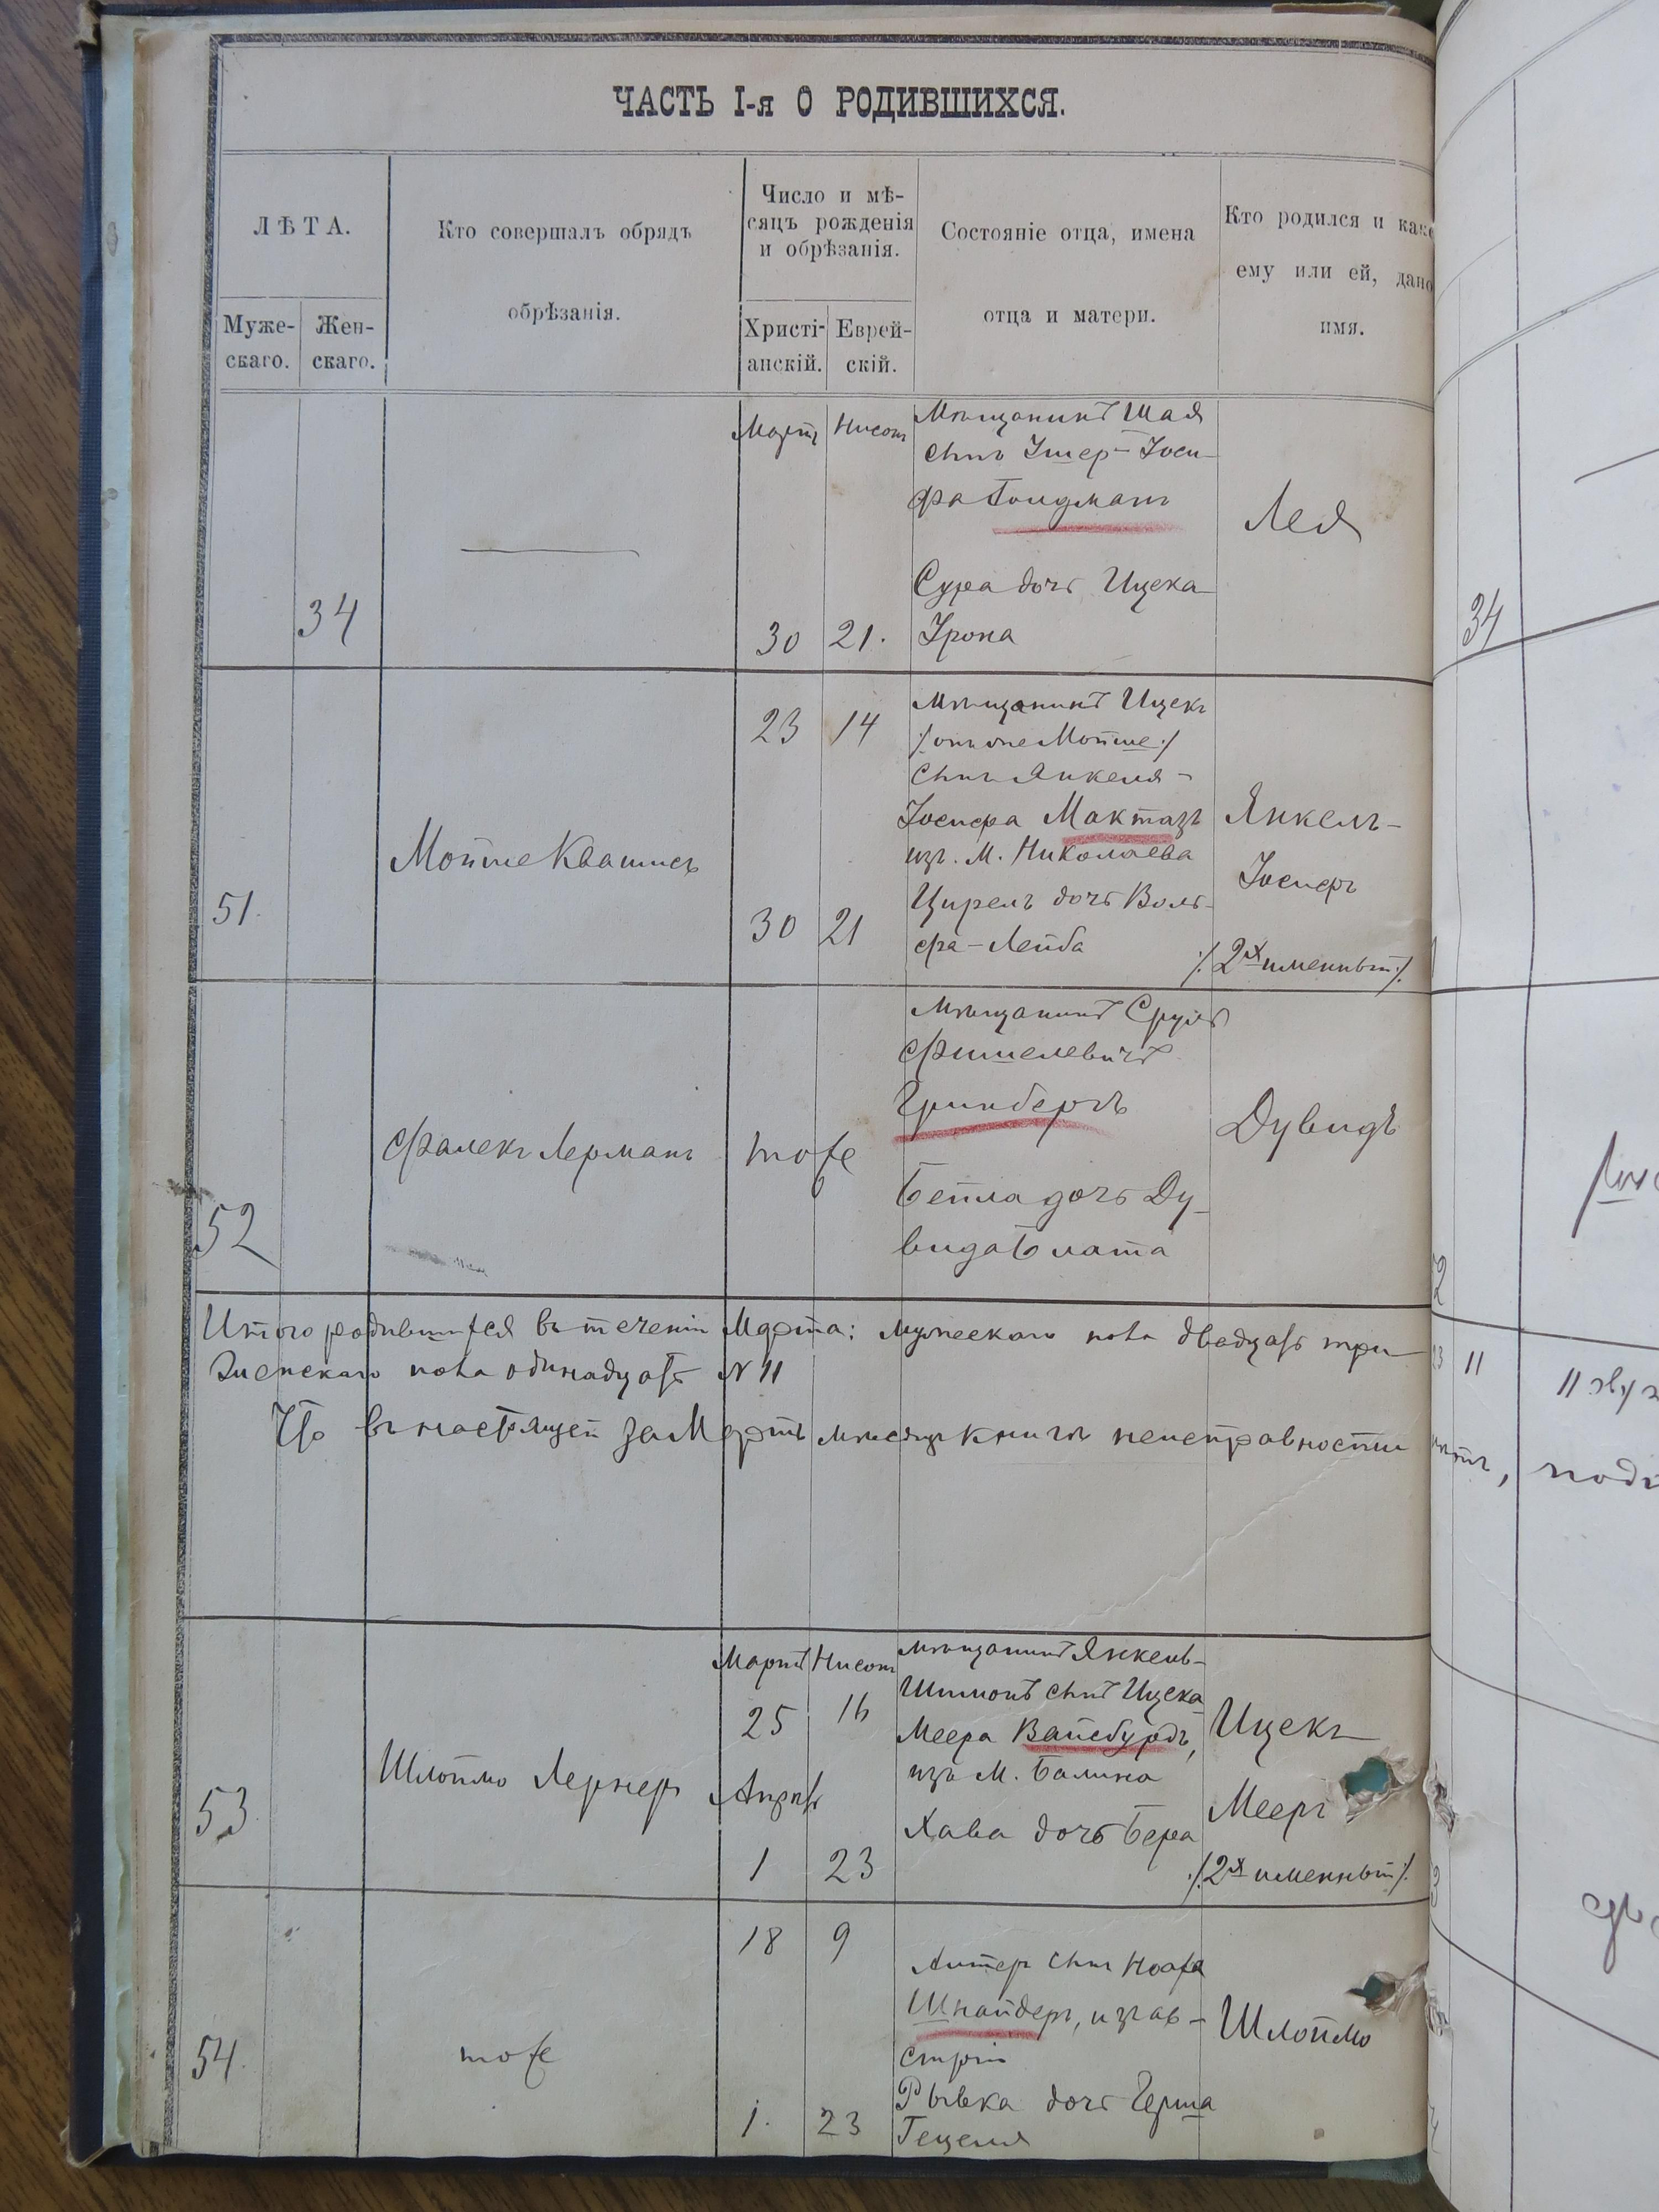 ЧАСТЬ I-я О РОДИВШИХСЯ.
ЛѢТА.
Муже-
скаго.
Жен-
скаго.
Кто совершалъ обрядъ
обрѣзанія.
Число и мѣ-
сяцъ рожденія
и обрѣзанія.
Христі-
анскій.
Еврей-
скій.
Состояніе отца, имена
отца и матери.
Кто родился и како
ему или ей, дано
имя.
34
Мартъ
30
Нисонъ
21.
Мѣщанинъ Шая
сынъ Ушер-Иоси-
фа Гольдманъ
Сура дочь Ицека-
Урона
Лея
34
51.
Мойше Квашисъ
23
14
30
21
Мѣщанинъ Ицекъ
/: онъ же Мойше :/
сынъ Янкеля-
Иосифа Мактазъ
изъ М. Николаева
Цирель дочь Воль-
фа-Лейба
Янкель-
Иосифъ
/: 2хъ именный :/
52
Фалекъ Лерманъ
тоже
Мѣщанинъ Сруль
Фишелевичъ
Гринбергъ
Бейла дочь Ду-
вида Блата
Дувидъ
Итого родившихся въ теченіи Марта: мужескаго пола двадцать три 23 11
Женскаго пола одинадцать N 11
Что въ настоящей за Мартъ мѣсяцъ книгѣ неисправности нѣтъ,
53
Шлоймо Лернеръ
Мартъ
25
Апрѣль
1
Нисонъ
16
23
Мѣщанинъ Янкель-
Шимонъ сынъ Ицека
Меера Вайсбурдъ,
изъ М. Балина
Хава дочь Бера
Ицекъ
Мееръ
/: 2хъ именный :/
54.
тоже
18
9
1.
23
Алтеръ сынъ Ноаха
Шнайдеръ, изъ Ав-
стріи
Рывка дочь Герша
Гецеля
Шлоймо